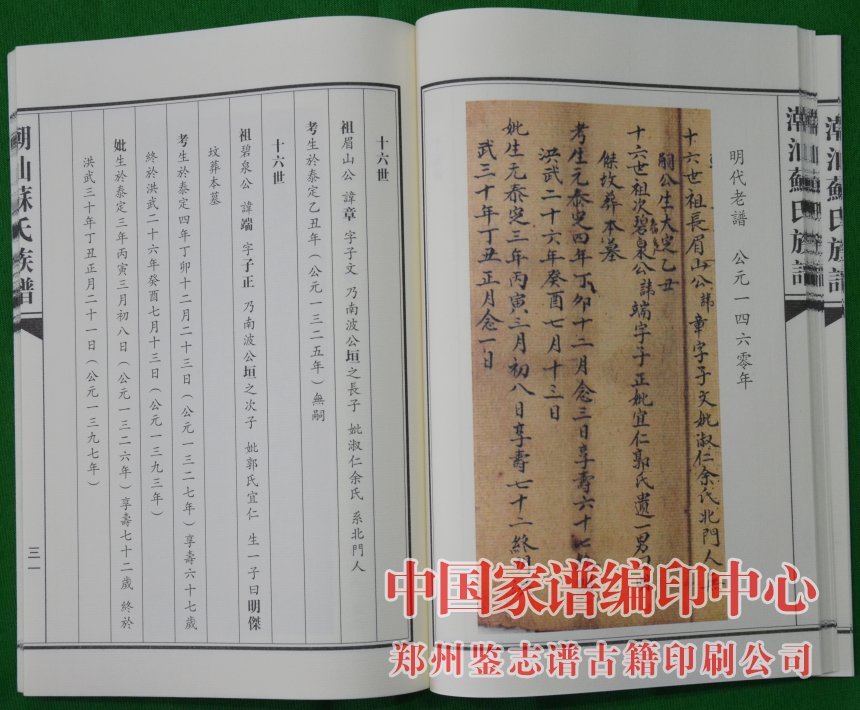 潮汕蘇氏族譜
潮汕蘇氏族譜
明代老譜 公元一四六零年
十六世祖長眉山公諱章字子文妣淑仁余氏北門人
嗣公生大定乙丑
十六世祖次碧泉公諱端字子正妣宜仁郭氏遺一男
傑坟葬本墓
考生元泰定四年丁卯十二月念三日享壽六十七
洪武二十六年癸酉七月十三日
妣生元泰定三年丙寅三月初八日享壽七十二終
武三十年丁丑正月念一日
十六世
祖眉山公 諱章 字子文 乃南波公垣之長子 妣淑仁余氏 系北門人
考生於泰定乙丑年（公元一三二五年）無嗣
十六世
祖碧泉公 諱端 字子正 乃南波公垣之次子 妣郭氏宜仁 生一子曰明傑
坟葬本墓
考生於泰定四年丁卯十二月二十三日（公元一三二七年）享壽六十七歲
終於洪武二十六年癸酉七月十三日（公元一三九三年）
妣生於泰定三年丙寅三月初八日（公元一三二六年）享壽七十二歲 終於
洪武三十年丁丑正月二十一日（公元一三九七年）
潮汕蘇氏族譜
三一
中国家谱编印中心
郑州鉴志谱古籍印刷公司